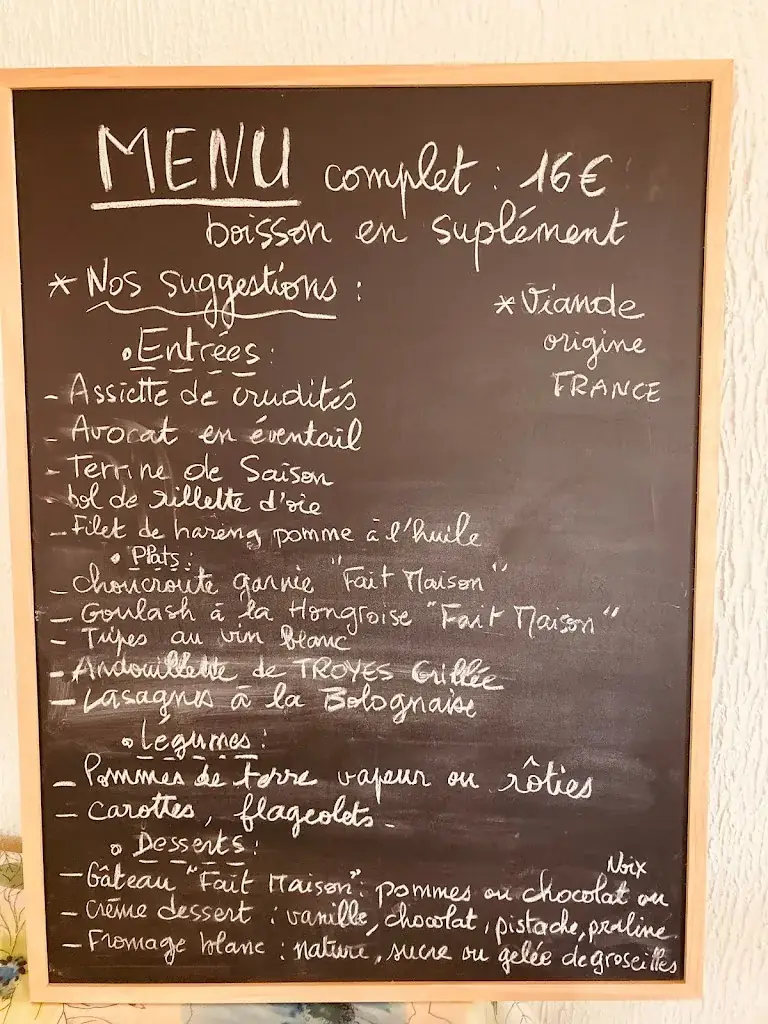 MENU complet : 16€
boisson en suplément
* Nos suggestions :
* Viande
origine
FRANCE
• Entrées :
- Assiette de crudités
- Avocat en éventail
- Terrine de Saison
- bol de rillette d'oie
- Filet de hareng pomme à l'huile
• Plats :
- choucroute garnie "Fait Maison"
- Goulash à la Hongroise "Fait Maison"
- Tripes au vin blanc
- Andouillette de TROYES Grillée
- Lasagnes à la Bolognaise
• Légumes :
- Pommes de terre vapeur ou rôties
- carottes, flageolets -
• Desserts :
- Gâteau "Fait Maison" : pommes ou chocolat ou Noix
- crème dessert : vanille, chocolat, pistache, praliné
- Fromage blanc : nature, sucre ou gelée de groseilles